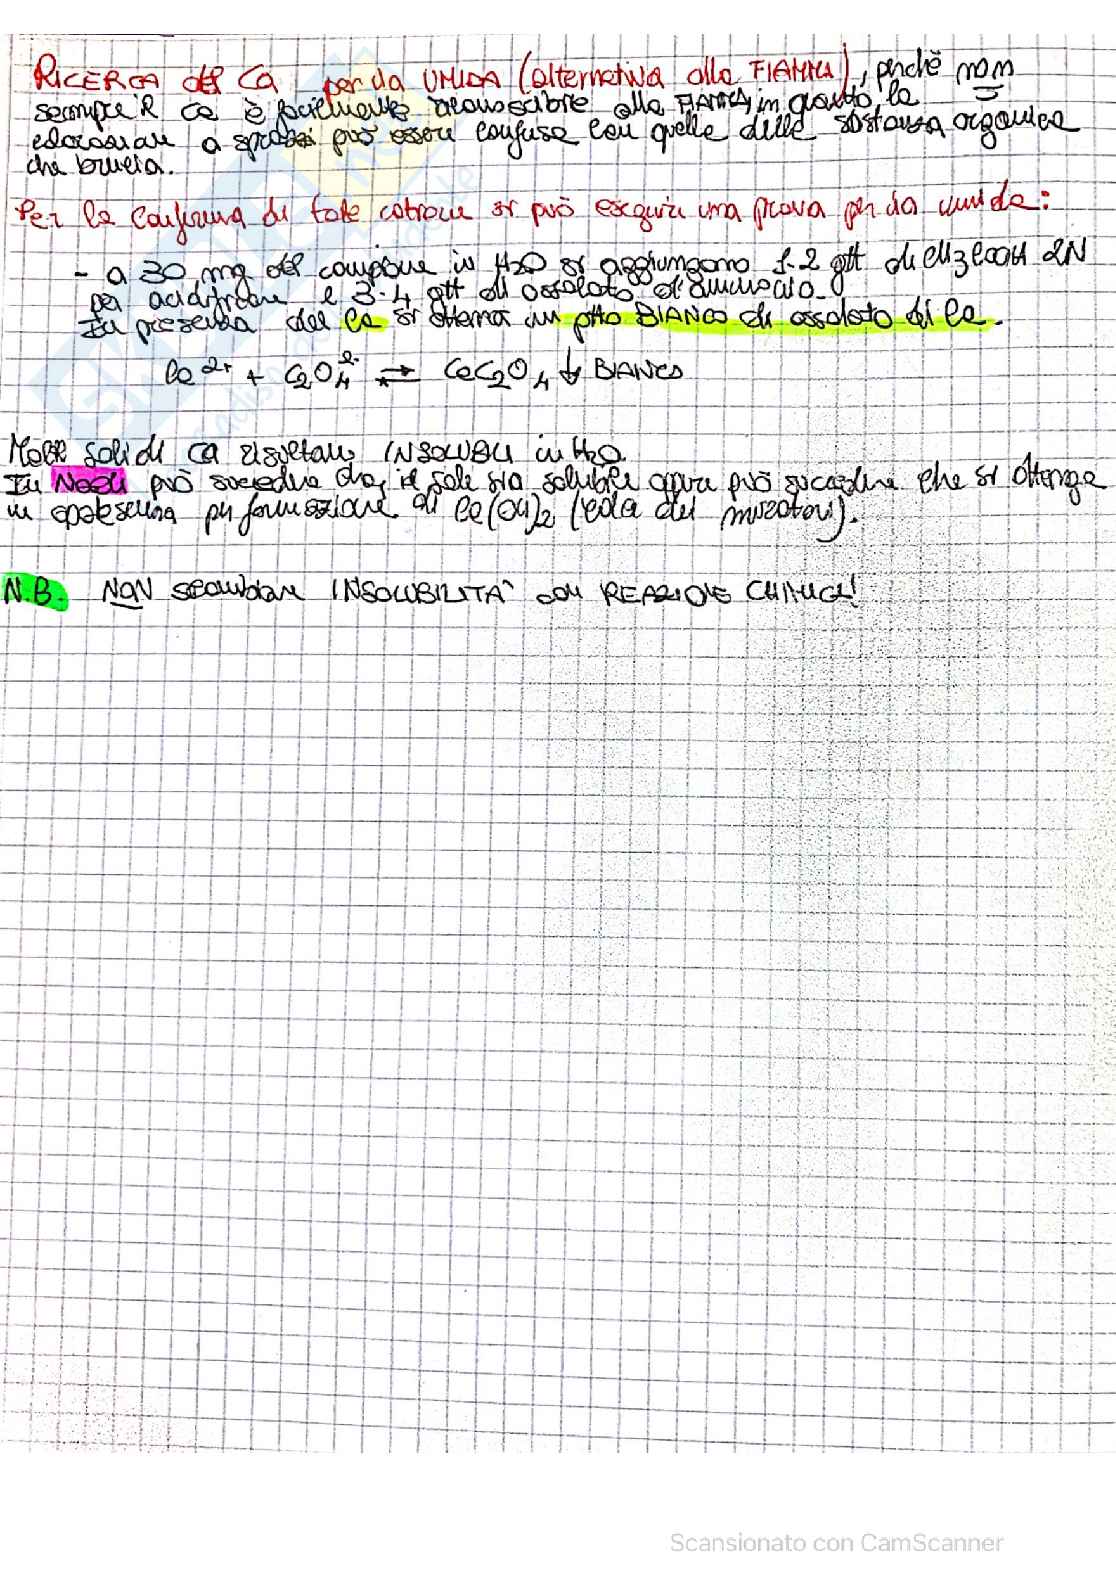 RICERCA del Ca per via UMIDA (alternativa alla FIAMMA), perchè non
sempre il Ca è facilmente riconoscibile alla FIAMMA, in quanto la
colorazione a sprazzi può essere confusa con quella della sostanza organica
che brucia.
Per la conferma di tale catione si può eseguire una prova per via umida:
- a 30 mg del campione in H2O si aggiungono 1-2 gtt di CH3COOH 2N
per acidificare e 3-4 gtt di ossalato d'ammonio.
In presenza del Ca si otterrà un ptto BIANCO di ossalato di Ca.
Ca2+ + C2O4 2- ⇄ CaC2O4 ↓ BIANCO
Molti sali di Ca risultano INSOLUBILI in H2O.
In NaOH può succedere che, il sale sia solubile oppure può succedere che si ottenga
in opalescenza per formazione di Ca(OH)2 (calce dei muratori).
N.B. NON scambiare INSOLUBILITÀ con REAZIONE CHIMICA!
Scansionato con CamScanner